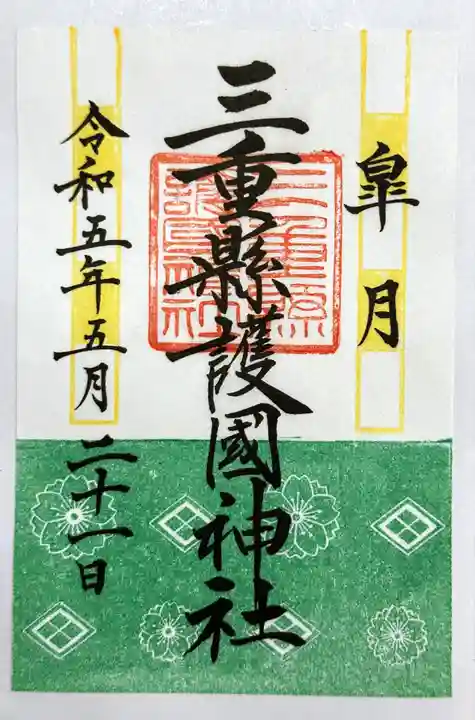 皐月
三重縣護國神社
令和五年五月二十一日